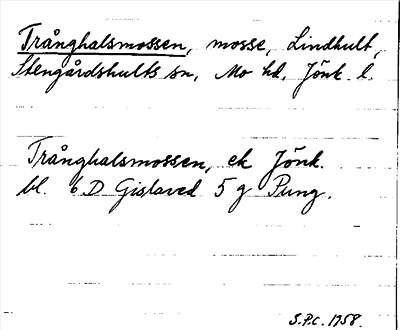 Trånghalsmossen, mosse, Lindhult,
Stengårdshults sn, Mo hd. Jönk. l.
Trånghalsmossen, ek Jönk.
bl. 6 D Gislaved 5 g Pung.
S.P.C. 1958.